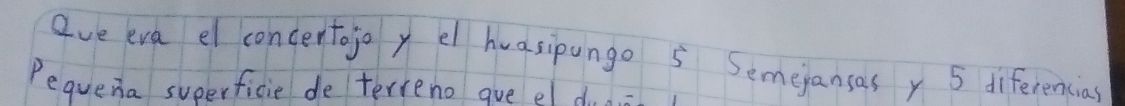 Que era el concertajo y el huasipungo 5 Semejansas y 5 diferencias
Pequeña superficie de terreno que el